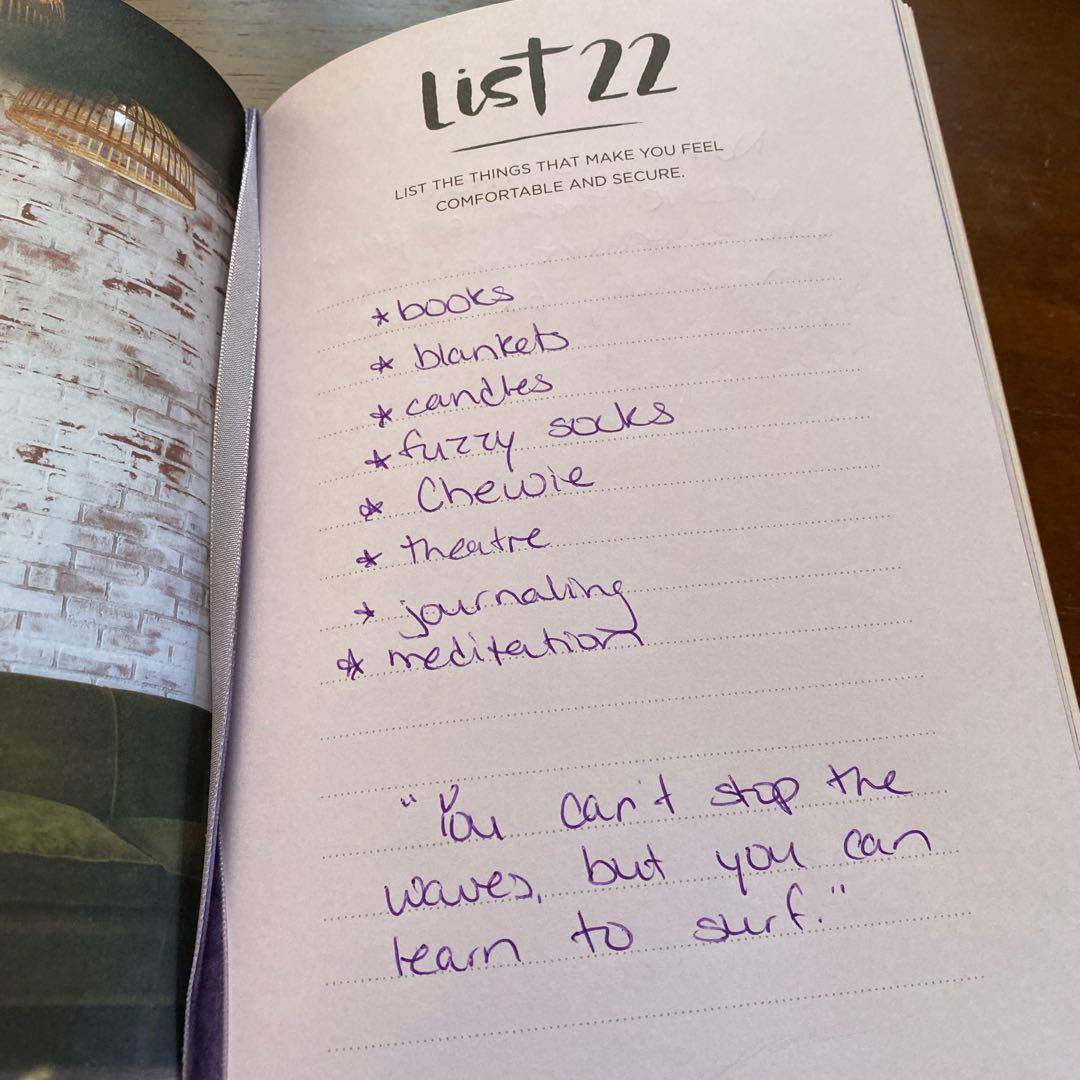 List 22
LIST THE THINGS THAT MAKE YOU FEEL
COMFORTABLE AND SECURE.
* books
* blankets
* candles
* fuzzy socks
* Chewie
* theatre
* journaling
* meditation
"You can't stop the
waves, but you can
learn to surf."